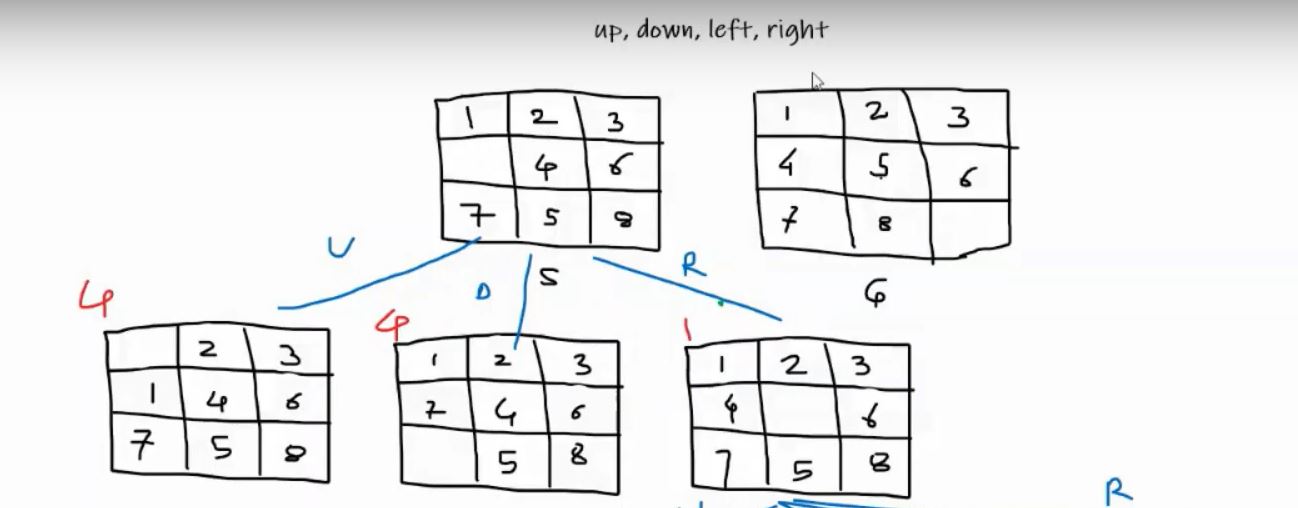 up, down, left, right
1 2 3
4 6
7 5 8
1 2 3
4 5 6
7 8
U
D
S
R
G
4
2 3
1 4 6
7 5 8
4
1 2 3
7 4 6
5 8
1
1 2 3
4 6
7 5 8
R